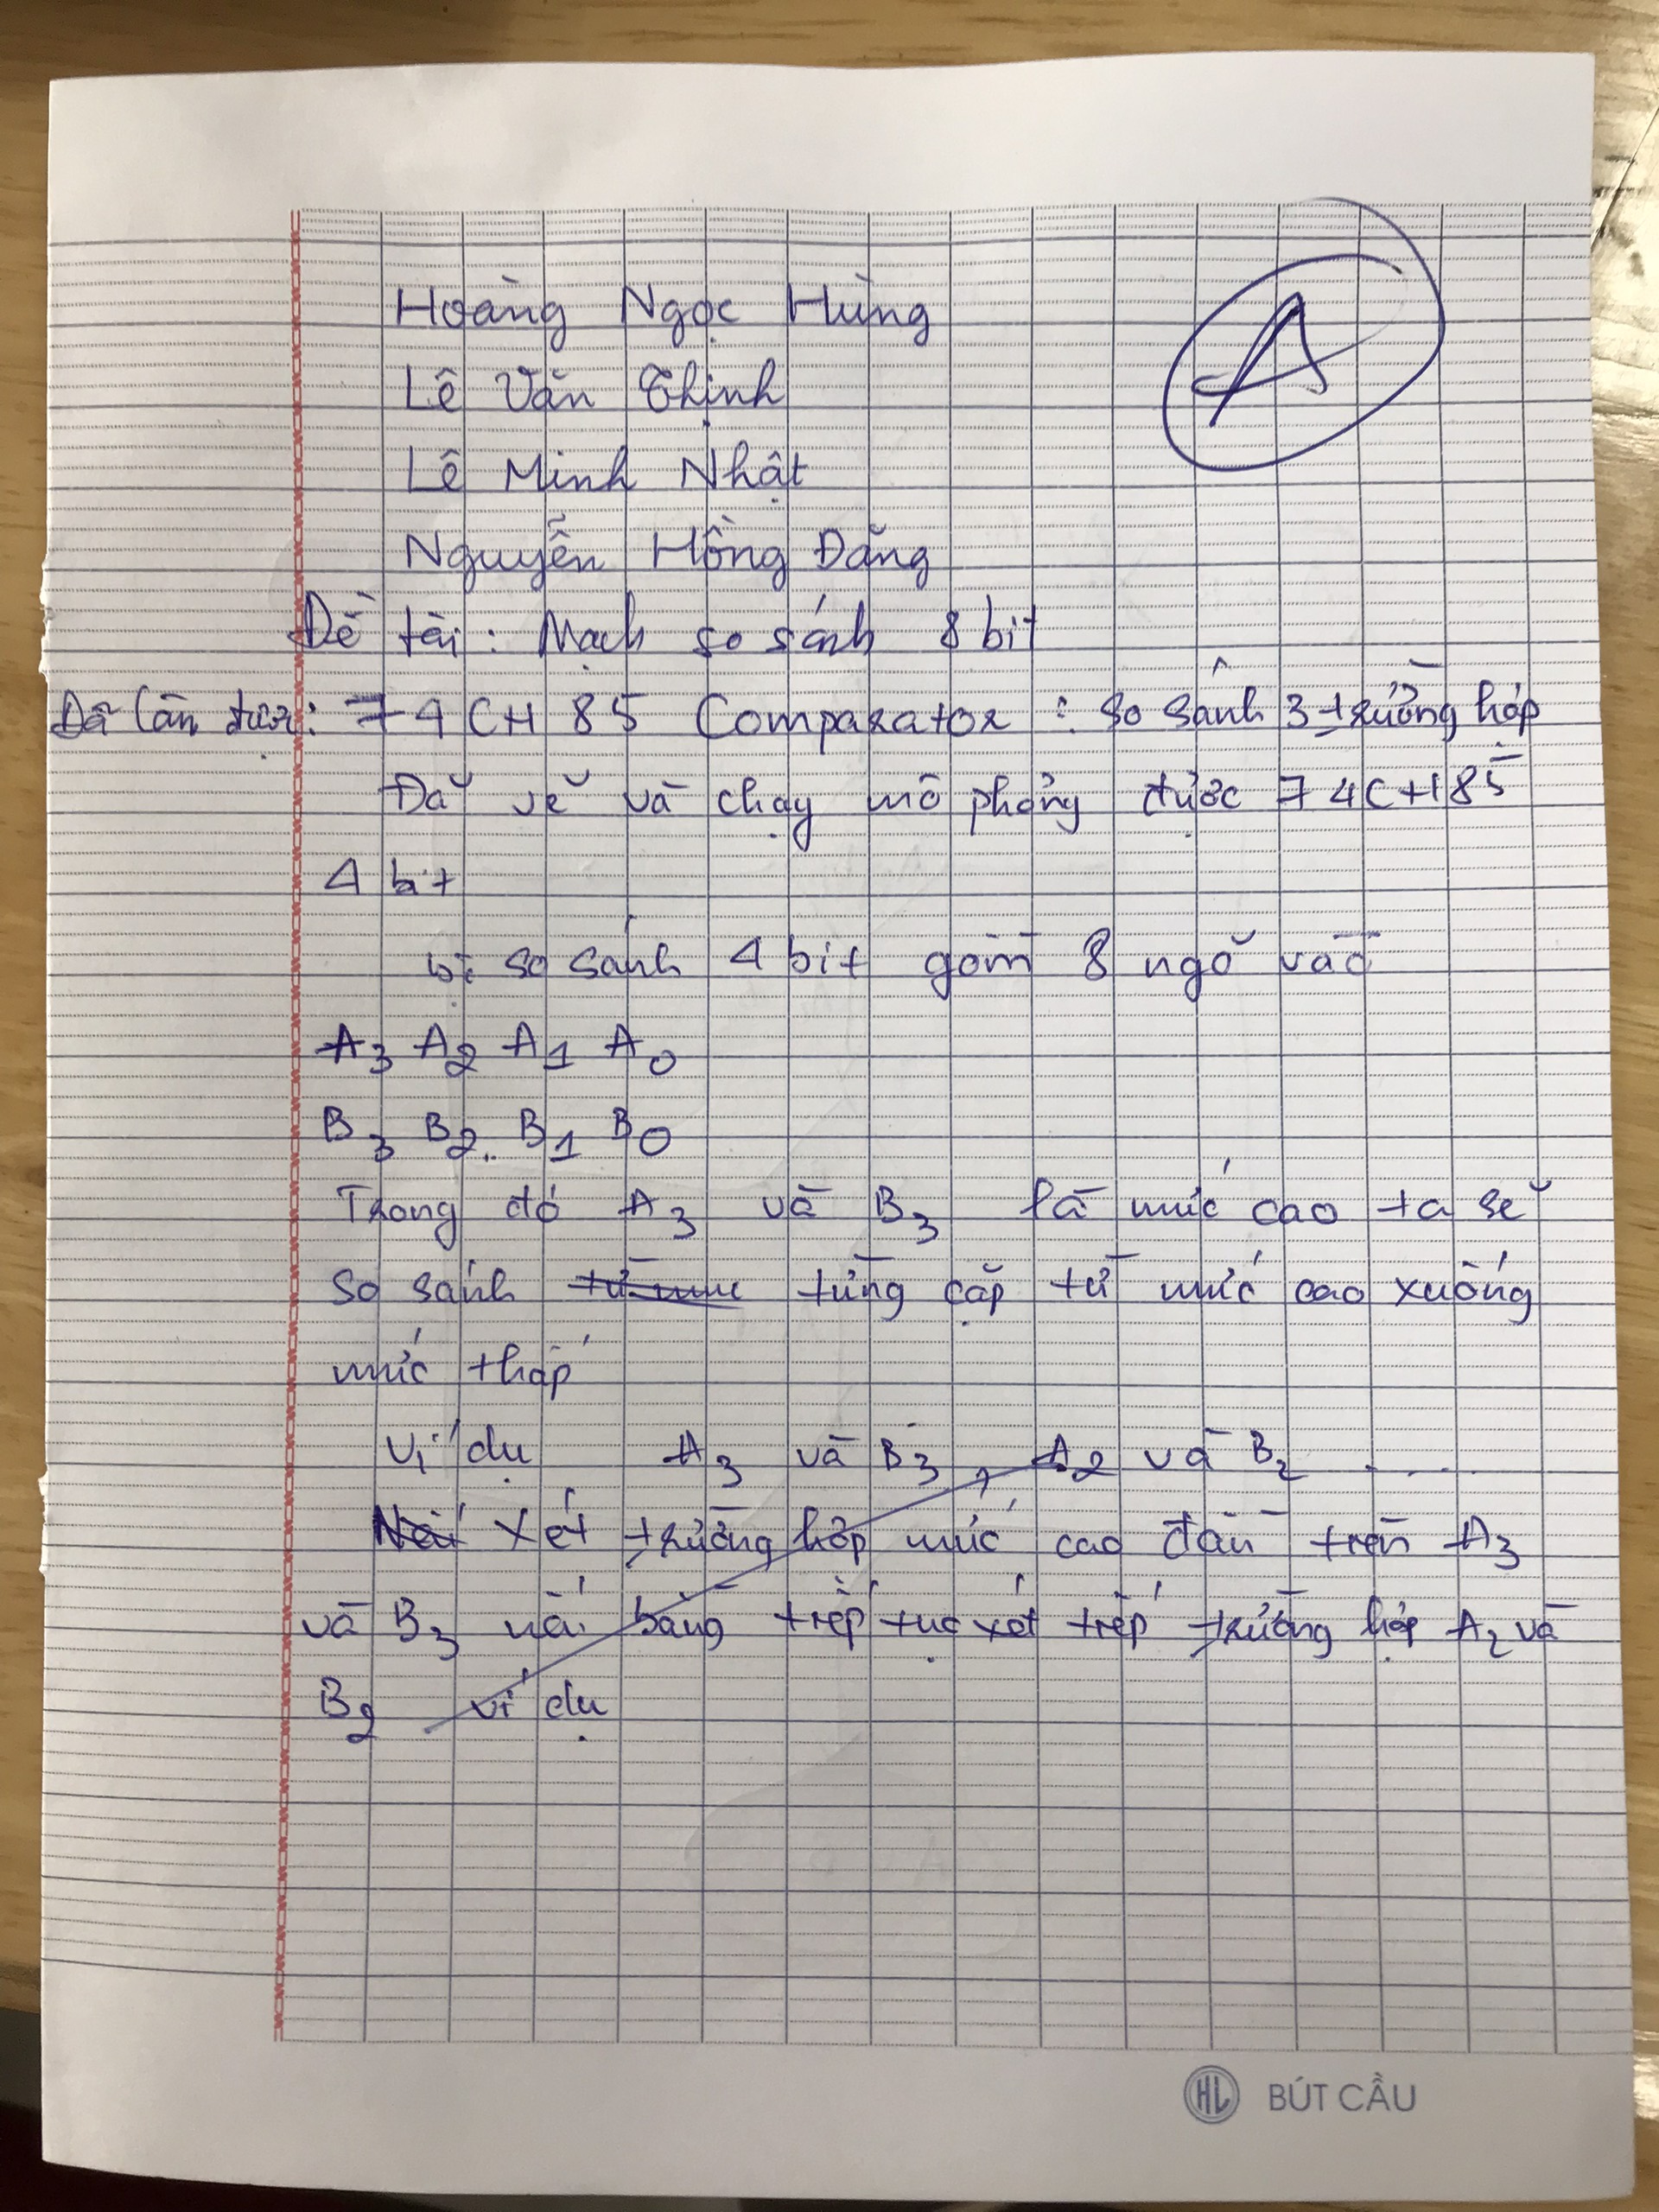 Hoàng Ngọc Hùng
A
Lê Văn Thịnh
Lê Minh Nhật
Nguyễn Hồng Đăng
Đề tài: Mạch so sánh 8 bit
Đã làm được: 74CH85 Comparator: so sánh 3 trường hợp
Đã vẽ và chạy mô phỏng được 74CH85
4 bit
bị so sánh 4 bit gồm 8 ngõ vào
A3 A2 A1 A0
B3 B2 B1 B0
Trong đó A3 và B3 là mức cao ta sẽ
so sánh từ mức từng cặp từ mức cao xuống
mức thấp
Ví dụ A3 và B3, A2 và B2 ....
Nếu Xét trường hợp mức cao đầu tiên A3
và B3 nếu bằng tiếp tục xét tiếp trường hợp A2 và
B2 ví dụ
HL BÚT CẦU